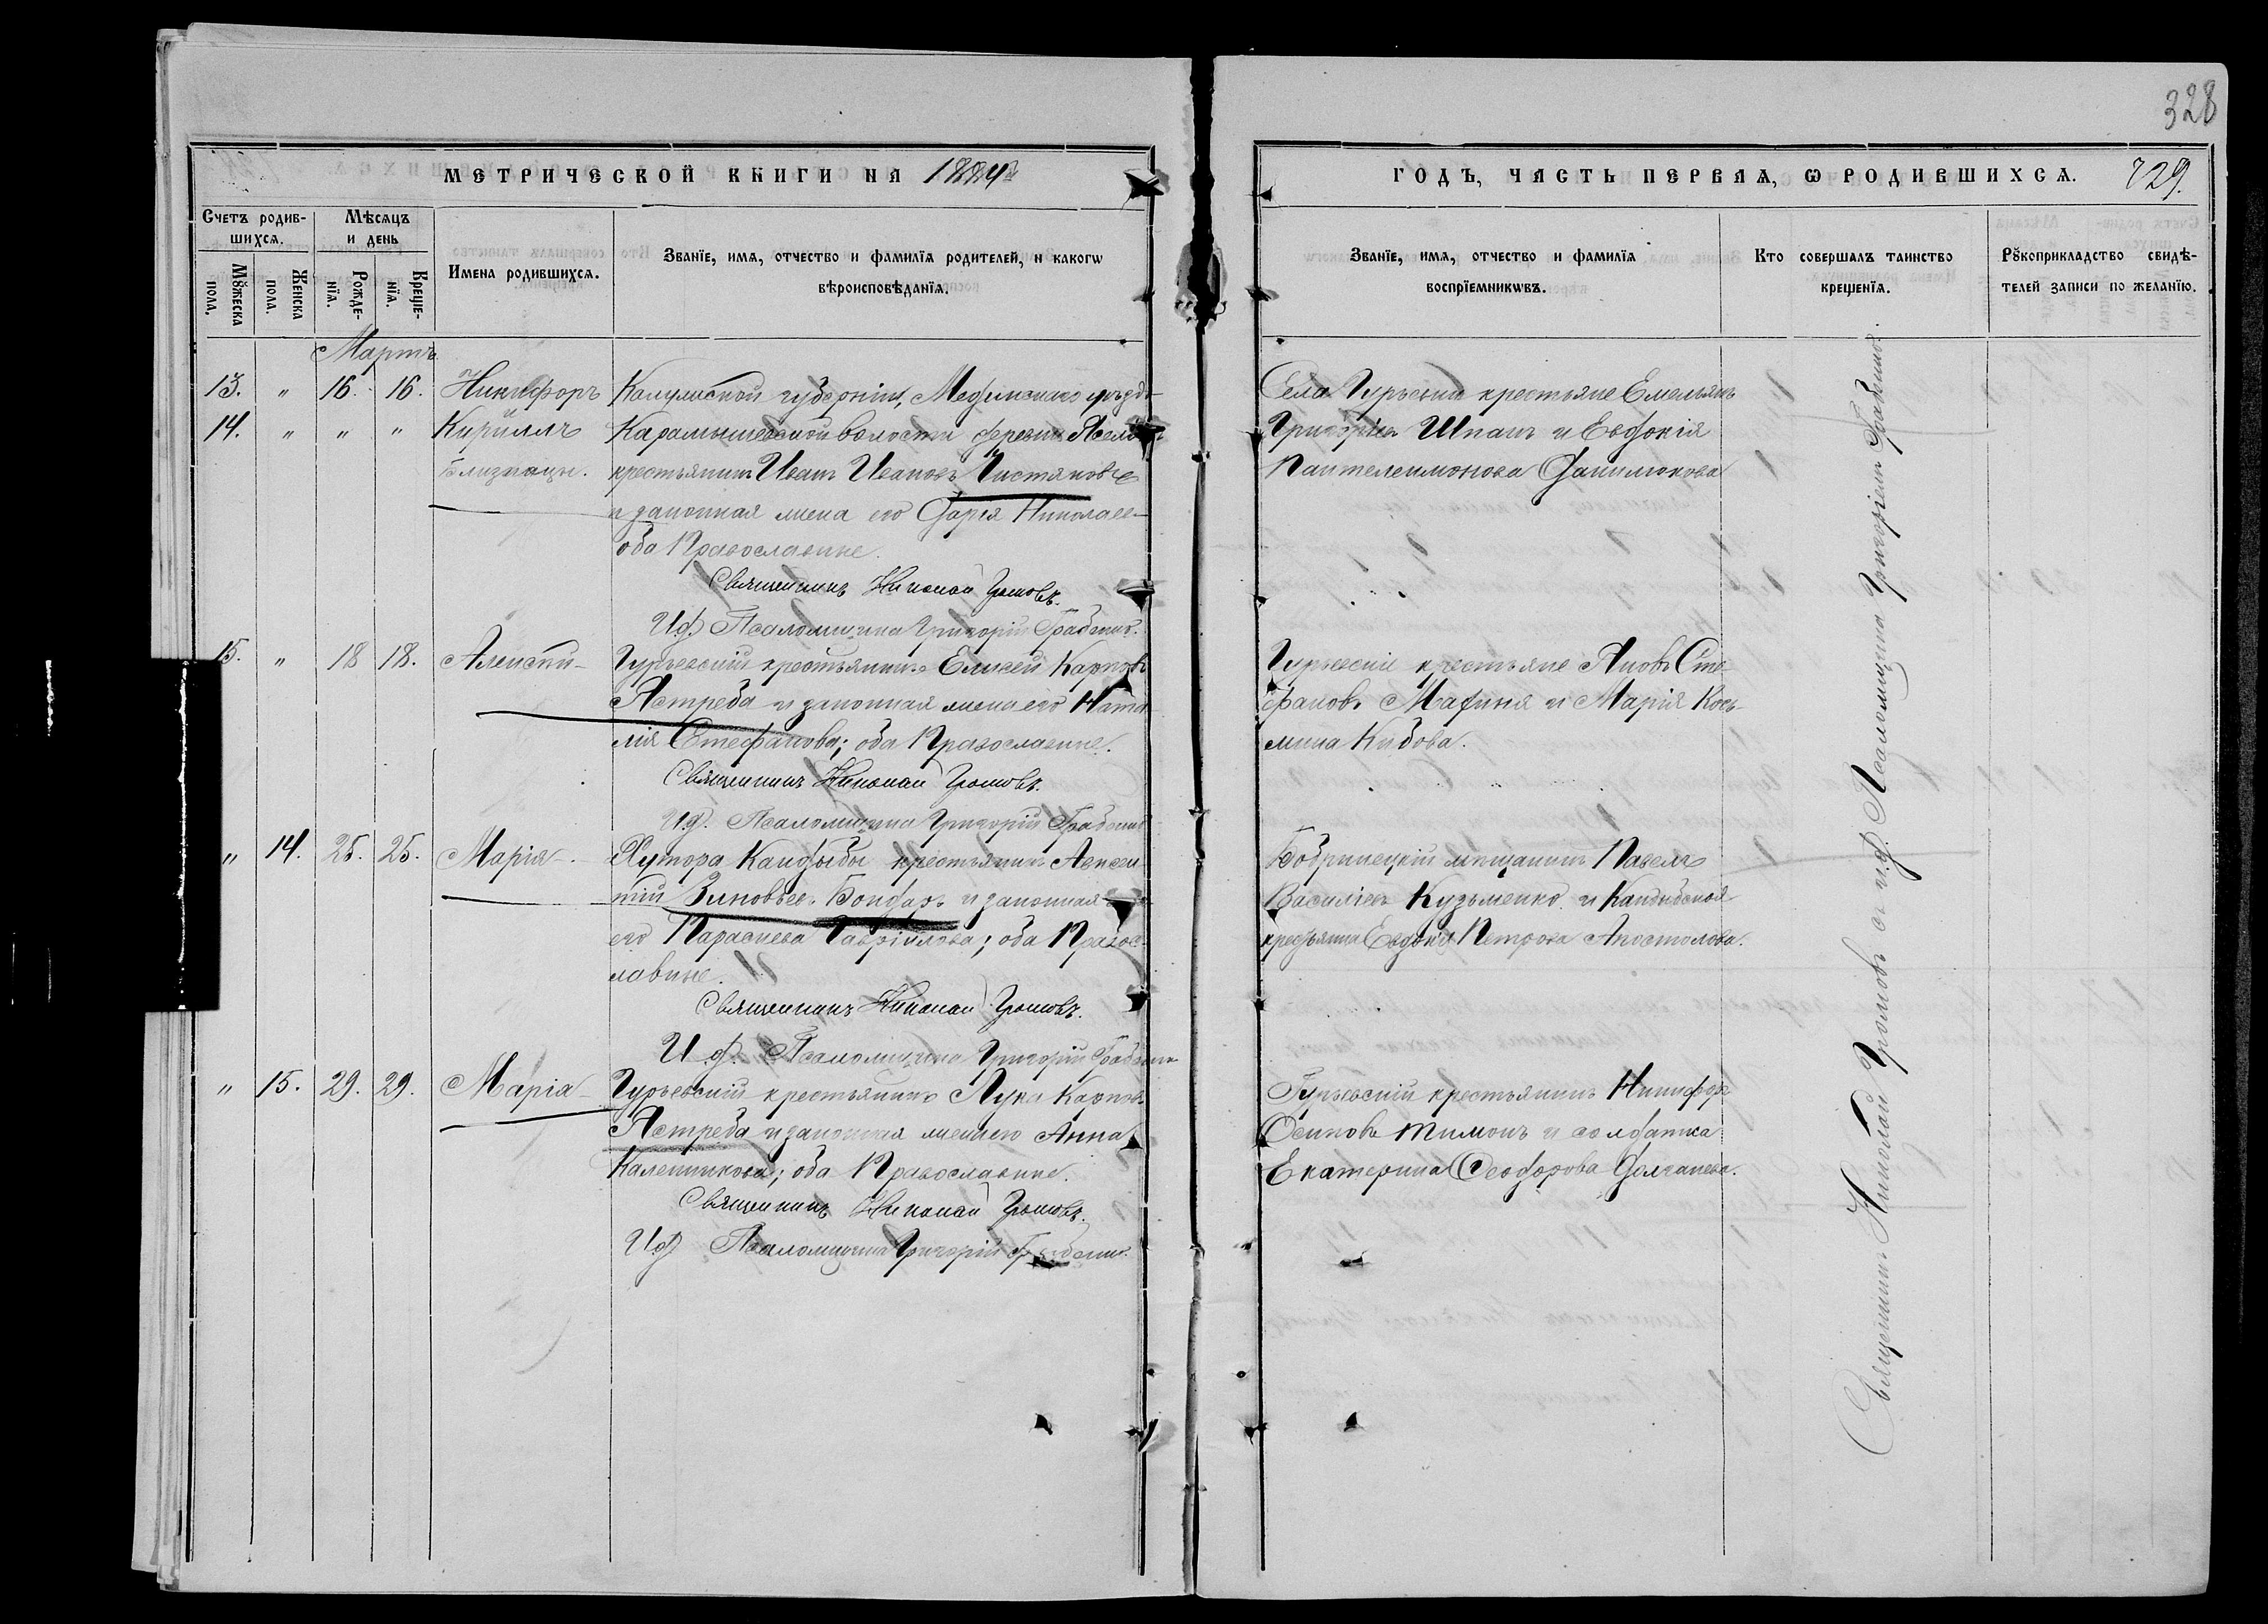 328
МЕТРИЧЕСКОЙ КНИГИ НА 1884й
ГОДЪ, ЧАСТЬ ПЕРВАЯ, Ѡ РОДИВШИХСЯ. 729.
Счетъ родив-
шихся.
Мѣсяцъ
и день
Мꙋжеска
пола,
Женска
пола.
Рожде-
нїя.
Креще-
нїя.
Имена родившихся.
Званїе, имя, отчество и фамилїя родителей, и какогѡ
вѣроисповѣданїя.
Званїе, имя, отчество и фамилїя
воспрїемникѡвъ.
Кто совершалъ таинство
крещенїя.
Рꙋкоприкладство свидѣ-
телей записи по желанїю.
Мартъ
13. „ 16. 16. Никифоръ
14. „ „ „ Кириллъ
Близнецы.
Калужской губерніи, Медынскаго уѣзда
Карамышевской волости деревни
крестьянинъ Иванъ Ивановъ Чистяковъ
и законная жена его Дарія Николаева
оба Православные.
Священникъ Николай Громовъ.
И.д. Псаломщика Григорій Грабенко.
Села Гурьевки крестьяне Емельянъ
Григоріевъ Шпакъ и Евдокія
Пантелеимонова Данилюкова
15. „ 18 18. Алексѣй
Гурьевскій крестьянинъ Елисей Карповъ
Ястреба и законная жена его Ната
лія Стефанова; оба Православные.
Священникъ Николай Громовъ.
И.д. Псаломщика Григорій Грабенко
Гурьевскіе крестьяне Яковъ Сте
фановъ и Марія Кось
мина
„ 14. 25. 25. Марія
Хутора Кандыбы крестьянинъ
Зиновьевъ Бондарь и законная
его Параскева Гавріилова; оба Правос-
лавные.
Священникъ Николай Громовъ.
И.д. Псаломщика Григорій Грабенко
Бобринецкій мѣщанинъ Павелъ
Василіевъ Кузьменко и Кандыбская
крестьянка Евдокія Петрова Апостолова.
„ 15. 29. 29. Марія
Гурьевскій крестьянинъ Лука Карповъ
Ястреба и законная жена его Анна
Каленикова; оба Православные.
Священникъ Николай Громовъ.
И.д. Псаломщика Григорій Грабенко.
Гурьевскій крестьянинъ Никифоръ
Осиповъ Тимонъ и солдатка
Екатерина Ѳеодорова
Священникъ Николай Громовъ съ и.д. Псаломщика Григоріемъ Грабенко.